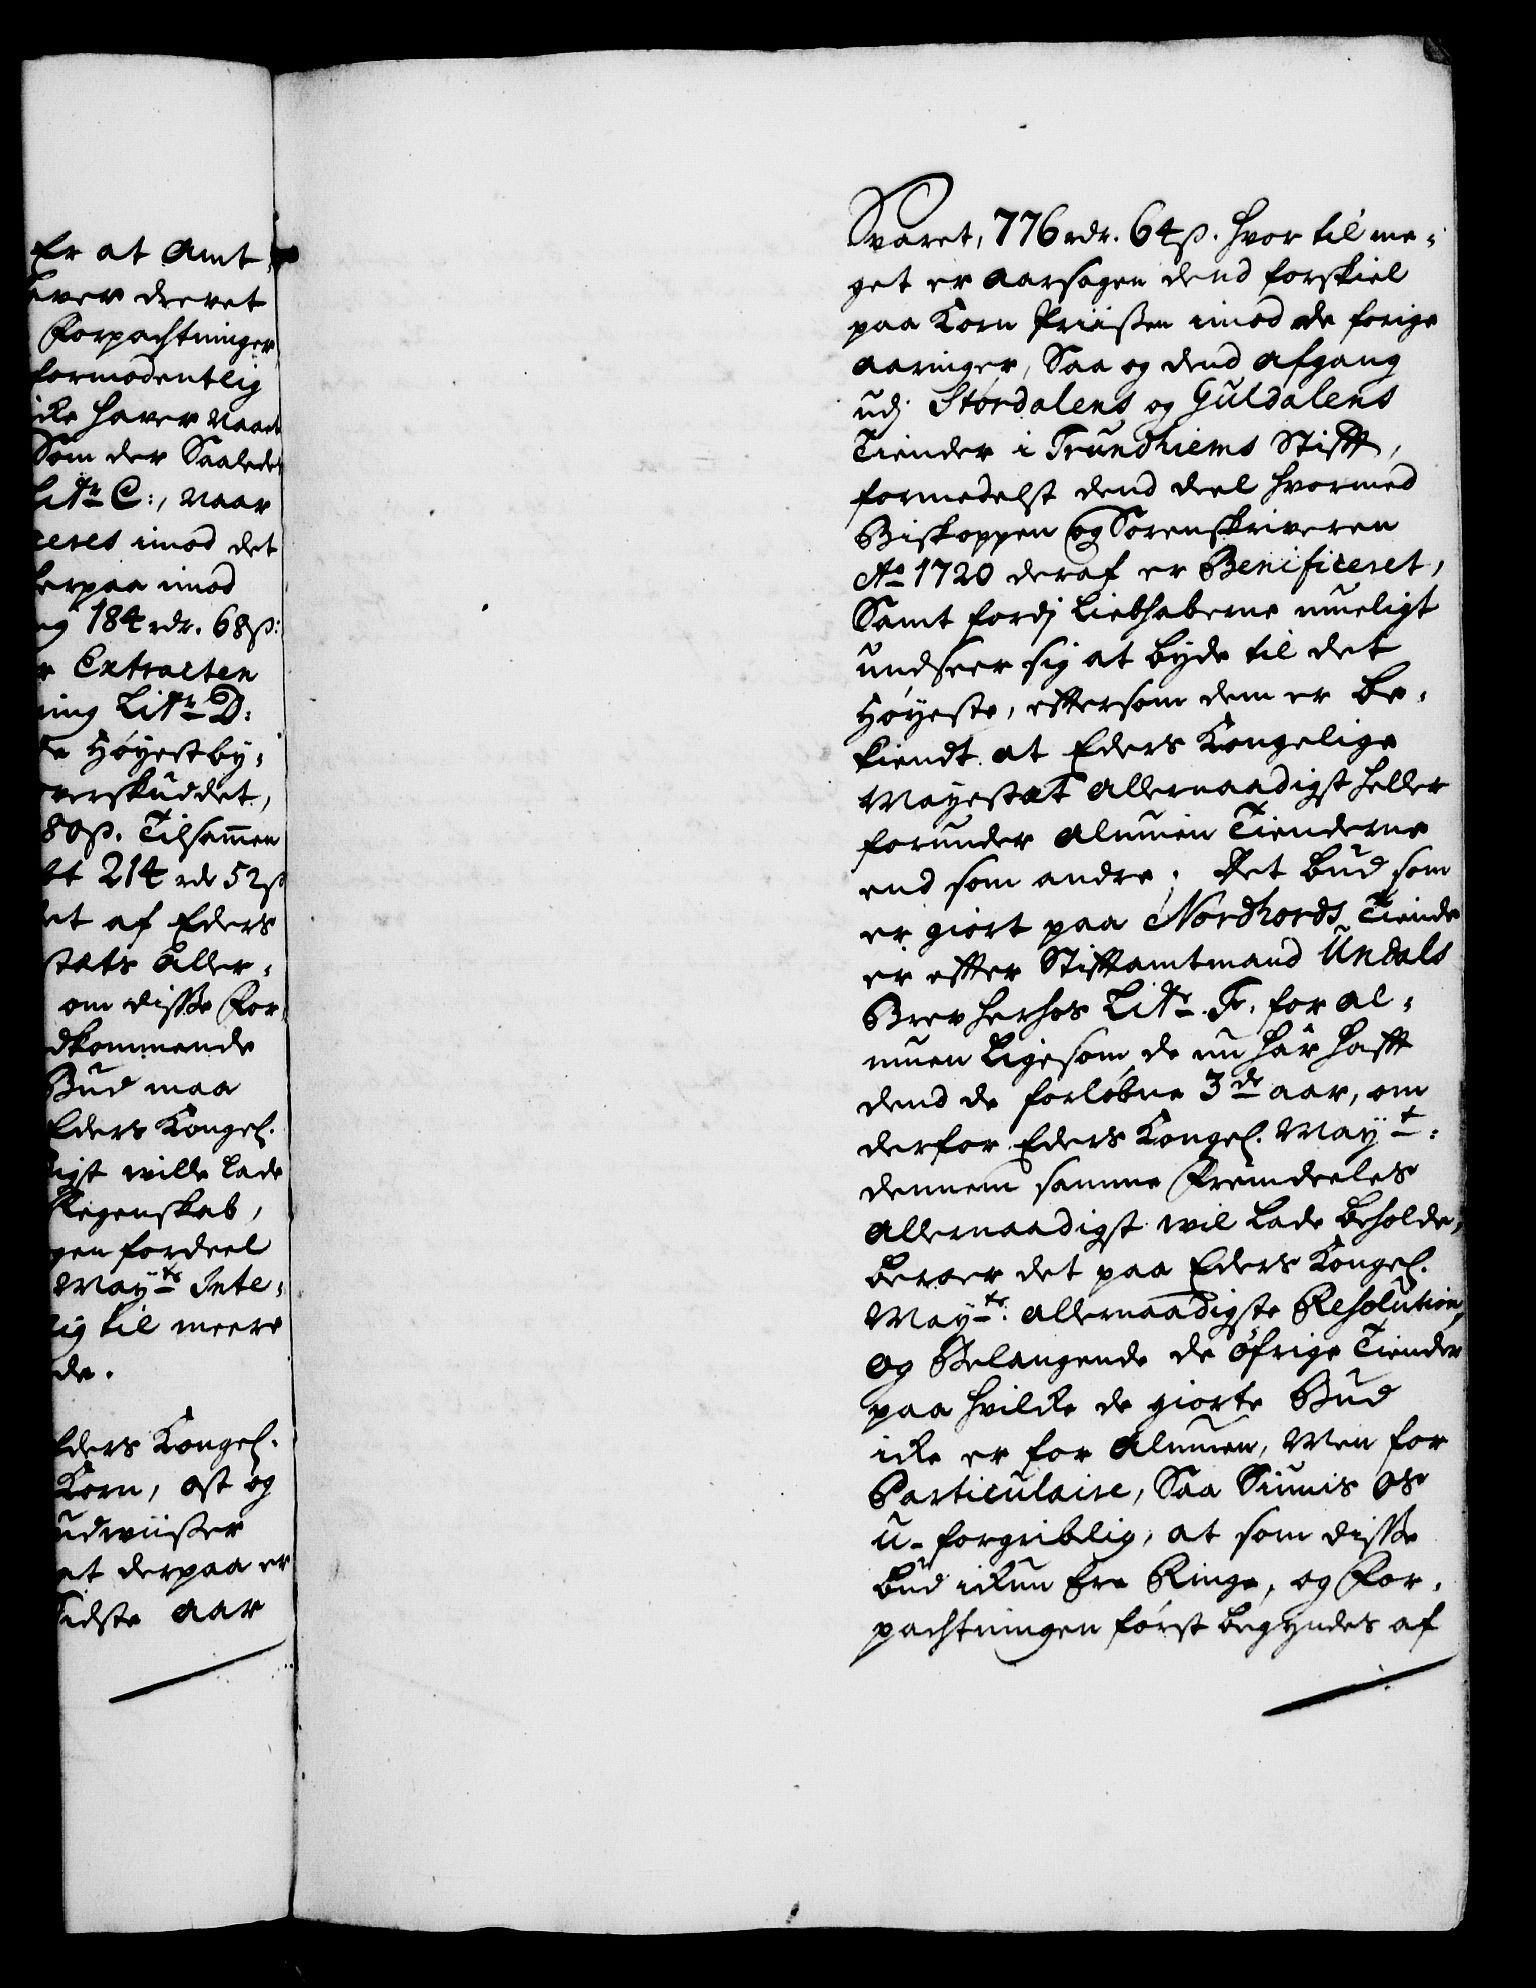 Er at Amt,
ever drevet
Forpachtninger,
formodentlig
icke haver vaaret
Som der Saaledes
Litr C:, naar
ceres imod det
herpaa imod
og 184 rdr. 68 ß:
r Extracten
ning Litr D:
de Høyestby-
verskuddet,
80 ß. Tilsamen
et 214 rdr 52 ß
et af Eders
stæts Aller-
om disse For-
dkommende
Bud maa
Eders Kongel.
igst wille lade
Regenskab,
gen fordeel
Mayts Inte-
lig til meere
de.
Eders Kongel.
Korn, ost og
udwiißer
et derpaa er
Sidste Aar
Svaret, 776 rdr. 64 ß. hvor til me-
get er Aarsagen dend forskiel
paa Korn Priißen imod de forige
Aaringer, Saa og dend afgang
udj Stórdalens og Gúldalens
Tiender i Trundhiems Stifft,
formedelst dend deel hvormed
Biskoppen og Sorenskriveren
Ao 1720 deraf er Benificeret,
Samt fordj Liebhaberne mueligt
undseer sig at byde til det
Høyeste, eftersom dem er be-
kiendt at Eders Kongelige
Mayestæt Allernaadigst heller
forunder Almuen Tienderne
end som andre; Det bud som
er giort paa Nordhords Tiende
er efter Stiftamtmand Undals
Brev herhos Litr. F. for Al-
muen ligesom de nu har hafft
dend de forløbne 3de aar, om
derfor Eders Kongel. Mayt:
dennem samme Fremdeeles
Allernaadigst wil lade beholde,
beroer det paa Eders Kongel.
Mayts: allernaadigste Resolution,
og Belangende de øfrige Tiender
paa hvilcke de giorte Bud
icke er for Almuen, Men for
Particulaire, Saa Siunis os
u-forgribelig, at som disse
bud ickun Ere Ringe, og For-
pachtningen først begyndes af